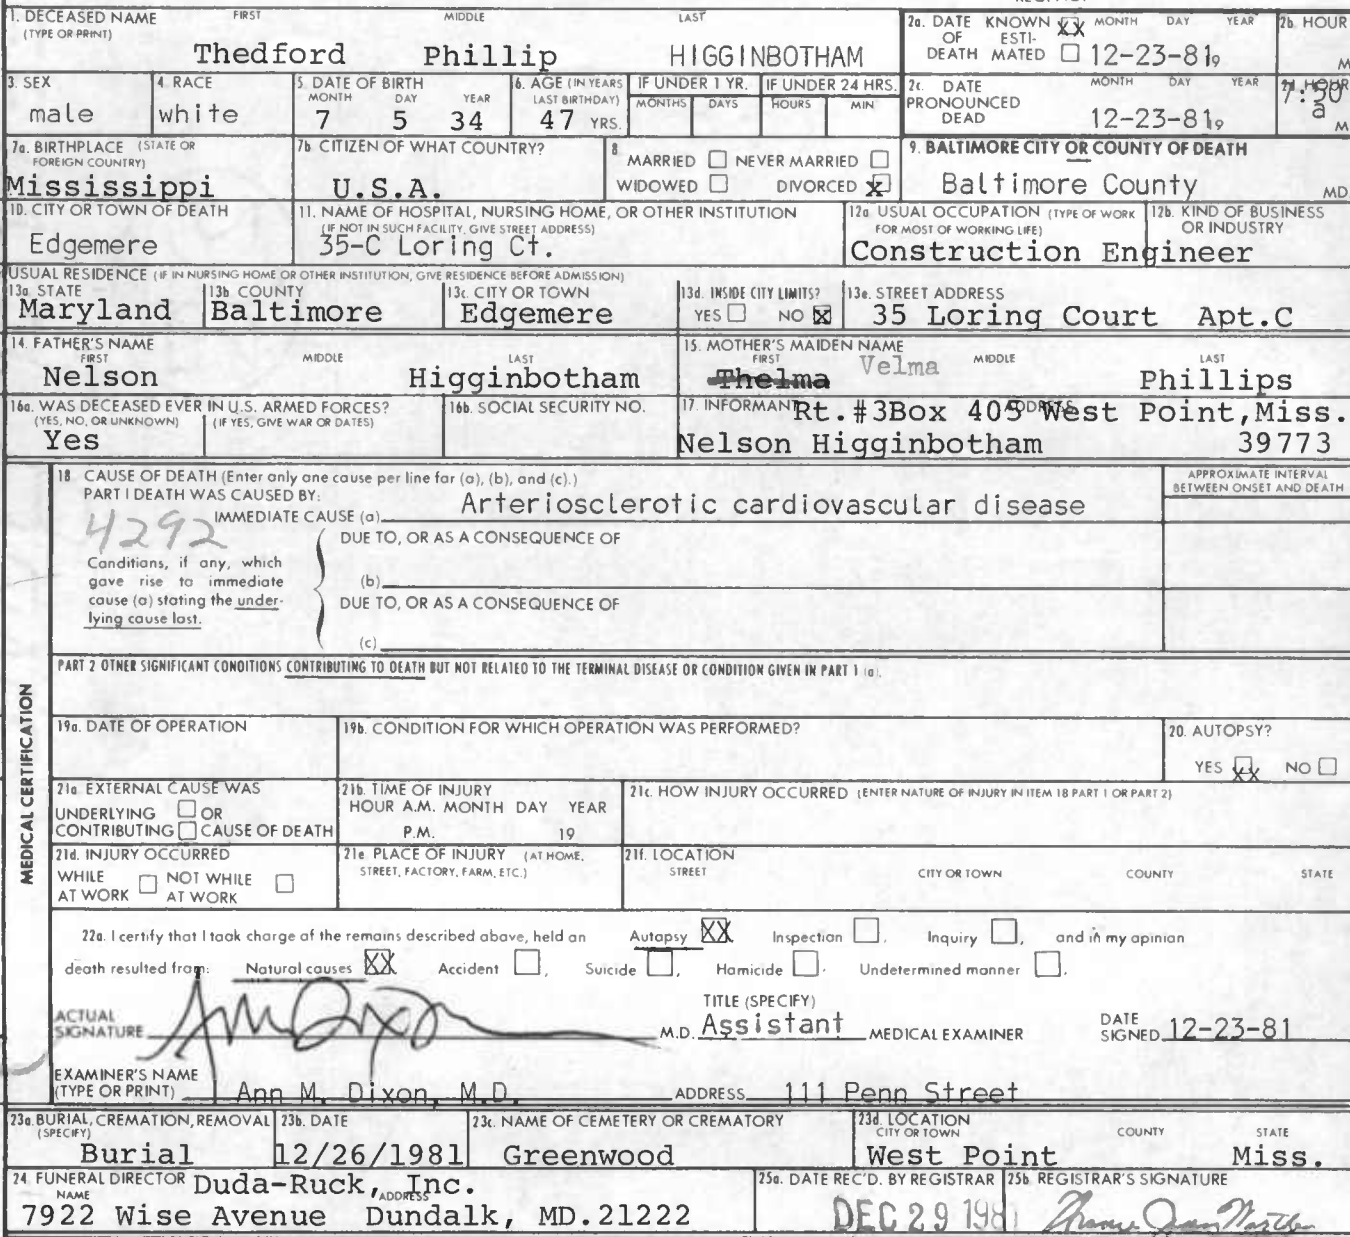 1. DECEASED NAME FIRST MIDDLE LAST
(TYPE OR PRINT)
Thedford Phillip HIGGINBOTHAM
2a. DATE OF DEATH KNOWN XX ESTIMATED MONTH DAY YEAR
12-23-81 19
2b. HOUR
M
3. SEX
male
4. RACE
white
5. DATE OF BIRTH
MONTH DAY YEAR
7 5 34
6. AGE (IN YEARS LAST BIRTHDAY)
47 YRS.
IF UNDER 1 YR.
MONTHS DAYS
IF UNDER 24 HRS.
HOURS MIN
2c. DATE PRONOUNCED DEAD MONTH DAY YEAR
12-23-81 19
HOUR
7:30
a M
7a. BIRTHPLACE (STATE OR FOREIGN COUNTRY)
Mississippi
7b. CITIZEN OF WHAT COUNTRY?
U.S.A.
8
MARRIED NEVER MARRIED
WIDOWED DIVORCED X
9. BALTIMORE CITY OR COUNTY OF DEATH
Baltimore County MD.
10. CITY OR TOWN OF DEATH
Edgemere
11. NAME OF HOSPITAL, NURSING HOME, OR OTHER INSTITUTION
(IF NOT IN SUCH FACILITY, GIVE STREET ADDRESS)
35-C Loring Ct.
12a. USUAL OCCUPATION (TYPE OF WORK FOR MOST OF WORKING LIFE)
12b. KIND OF BUSINESS OR INDUSTRY
Construction Engineer
USUAL RESIDENCE (IF IN NURSING HOME OR OTHER INSTITUTION, GIVE RESIDENCE BEFORE ADMISSION)
13a. STATE
Maryland
13b. COUNTY
Baltimore
13c. CITY OR TOWN
Edgemere
13d. INSIDE CITY LIMITS?
YES NO X
13e. STREET ADDRESS
35 Loring Court Apt.C
14. FATHER'S NAME
FIRST MIDDLE LAST
Nelson Higginbotham
15. MOTHER'S MAIDEN NAME
FIRST MIDDLE LAST
Thelma Velma Phillips
16a. WAS DECEASED EVER IN U.S. ARMED FORCES?
(YES, NO, OR UNKNOWN) (IF YES, GIVE WAR OR DATES)
Yes
16b. SOCIAL SECURITY NO.
17. INFORMANT ADDRESS
Rt.#3Box 405 West Point,Miss.
Nelson Higginbotham 39773
MEDICAL CERTIFICATION
18. CAUSE OF DEATH (Enter only one cause per line for (a), (b), and (c).)
PART I DEATH WAS CAUSED BY:
IMMEDIATE CAUSE (a) Arteriosclerotic cardiovascular disease
APPROXIMATE INTERVAL BETWEEN ONSET AND DEATH
4292
Conditions, if any, which
gave rise to immediate
cause (a) stating the under-
lying cause last.
DUE TO, OR AS A CONSEQUENCE OF
(b)
DUE TO, OR AS A CONSEQUENCE OF
(c)
PART 2 OTHER SIGNIFICANT CONDITIONS CONTRIBUTING TO DEATH BUT NOT RELATED TO THE TERMINAL DISEASE OR CONDITION GIVEN IN PART 1 (a).
19a. DATE OF OPERATION
19b. CONDITION FOR WHICH OPERATION WAS PERFORMED?
20. AUTOPSY?
YES XX NO
21a. EXTERNAL CAUSE WAS
UNDERLYING OR
CONTRIBUTING CAUSE OF DEATH
21b. TIME OF INJURY
HOUR A.M. MONTH DAY YEAR
P.M. 19
21c. HOW INJURY OCCURRED (ENTER NATURE OF INJURY IN ITEM 18 PART 1 OR PART 2)
21d. INJURY OCCURRED
WHILE AT WORK NOT WHILE AT WORK
21e. PLACE OF INJURY (AT HOME, STREET, FACTORY, FARM, ETC.)
21f. LOCATION
STREET CITY OR TOWN COUNTY STATE
22a. I certify that I took charge of the remains described above, held an Autopsy XX Inspection, Inquiry, and in my opinion
death resulted from: Natural causes XX Accident, Suicide, Homicide, Undetermined manner.
ACTUAL SIGNATURE Ann M Dixon M.D.
TITLE (SPECIFY)
Assistant MEDICAL EXAMINER
DATE SIGNED 12-23-81
EXAMINER'S NAME
(TYPE OR PRINT) Ann M. Dixon, M.D. ADDRESS 111 Penn Street
23a. BURIAL, CREMATION, REMOVAL (SPECIFY)
Burial
23b. DATE
12/26/1981
23c. NAME OF CEMETERY OR CREMATORY
Greenwood
23d. LOCATION
CITY OR TOWN COUNTY STATE
West Point Miss.
24. FUNERAL DIRECTOR
NAME ADDRESS
Duda-Ruck, Inc.
7922 Wise Avenue Dundalk, MD.21222
25a. DATE REC'D. BY REGISTRAR
DEC 29 1981
25b. REGISTRAR'S SIGNATURE